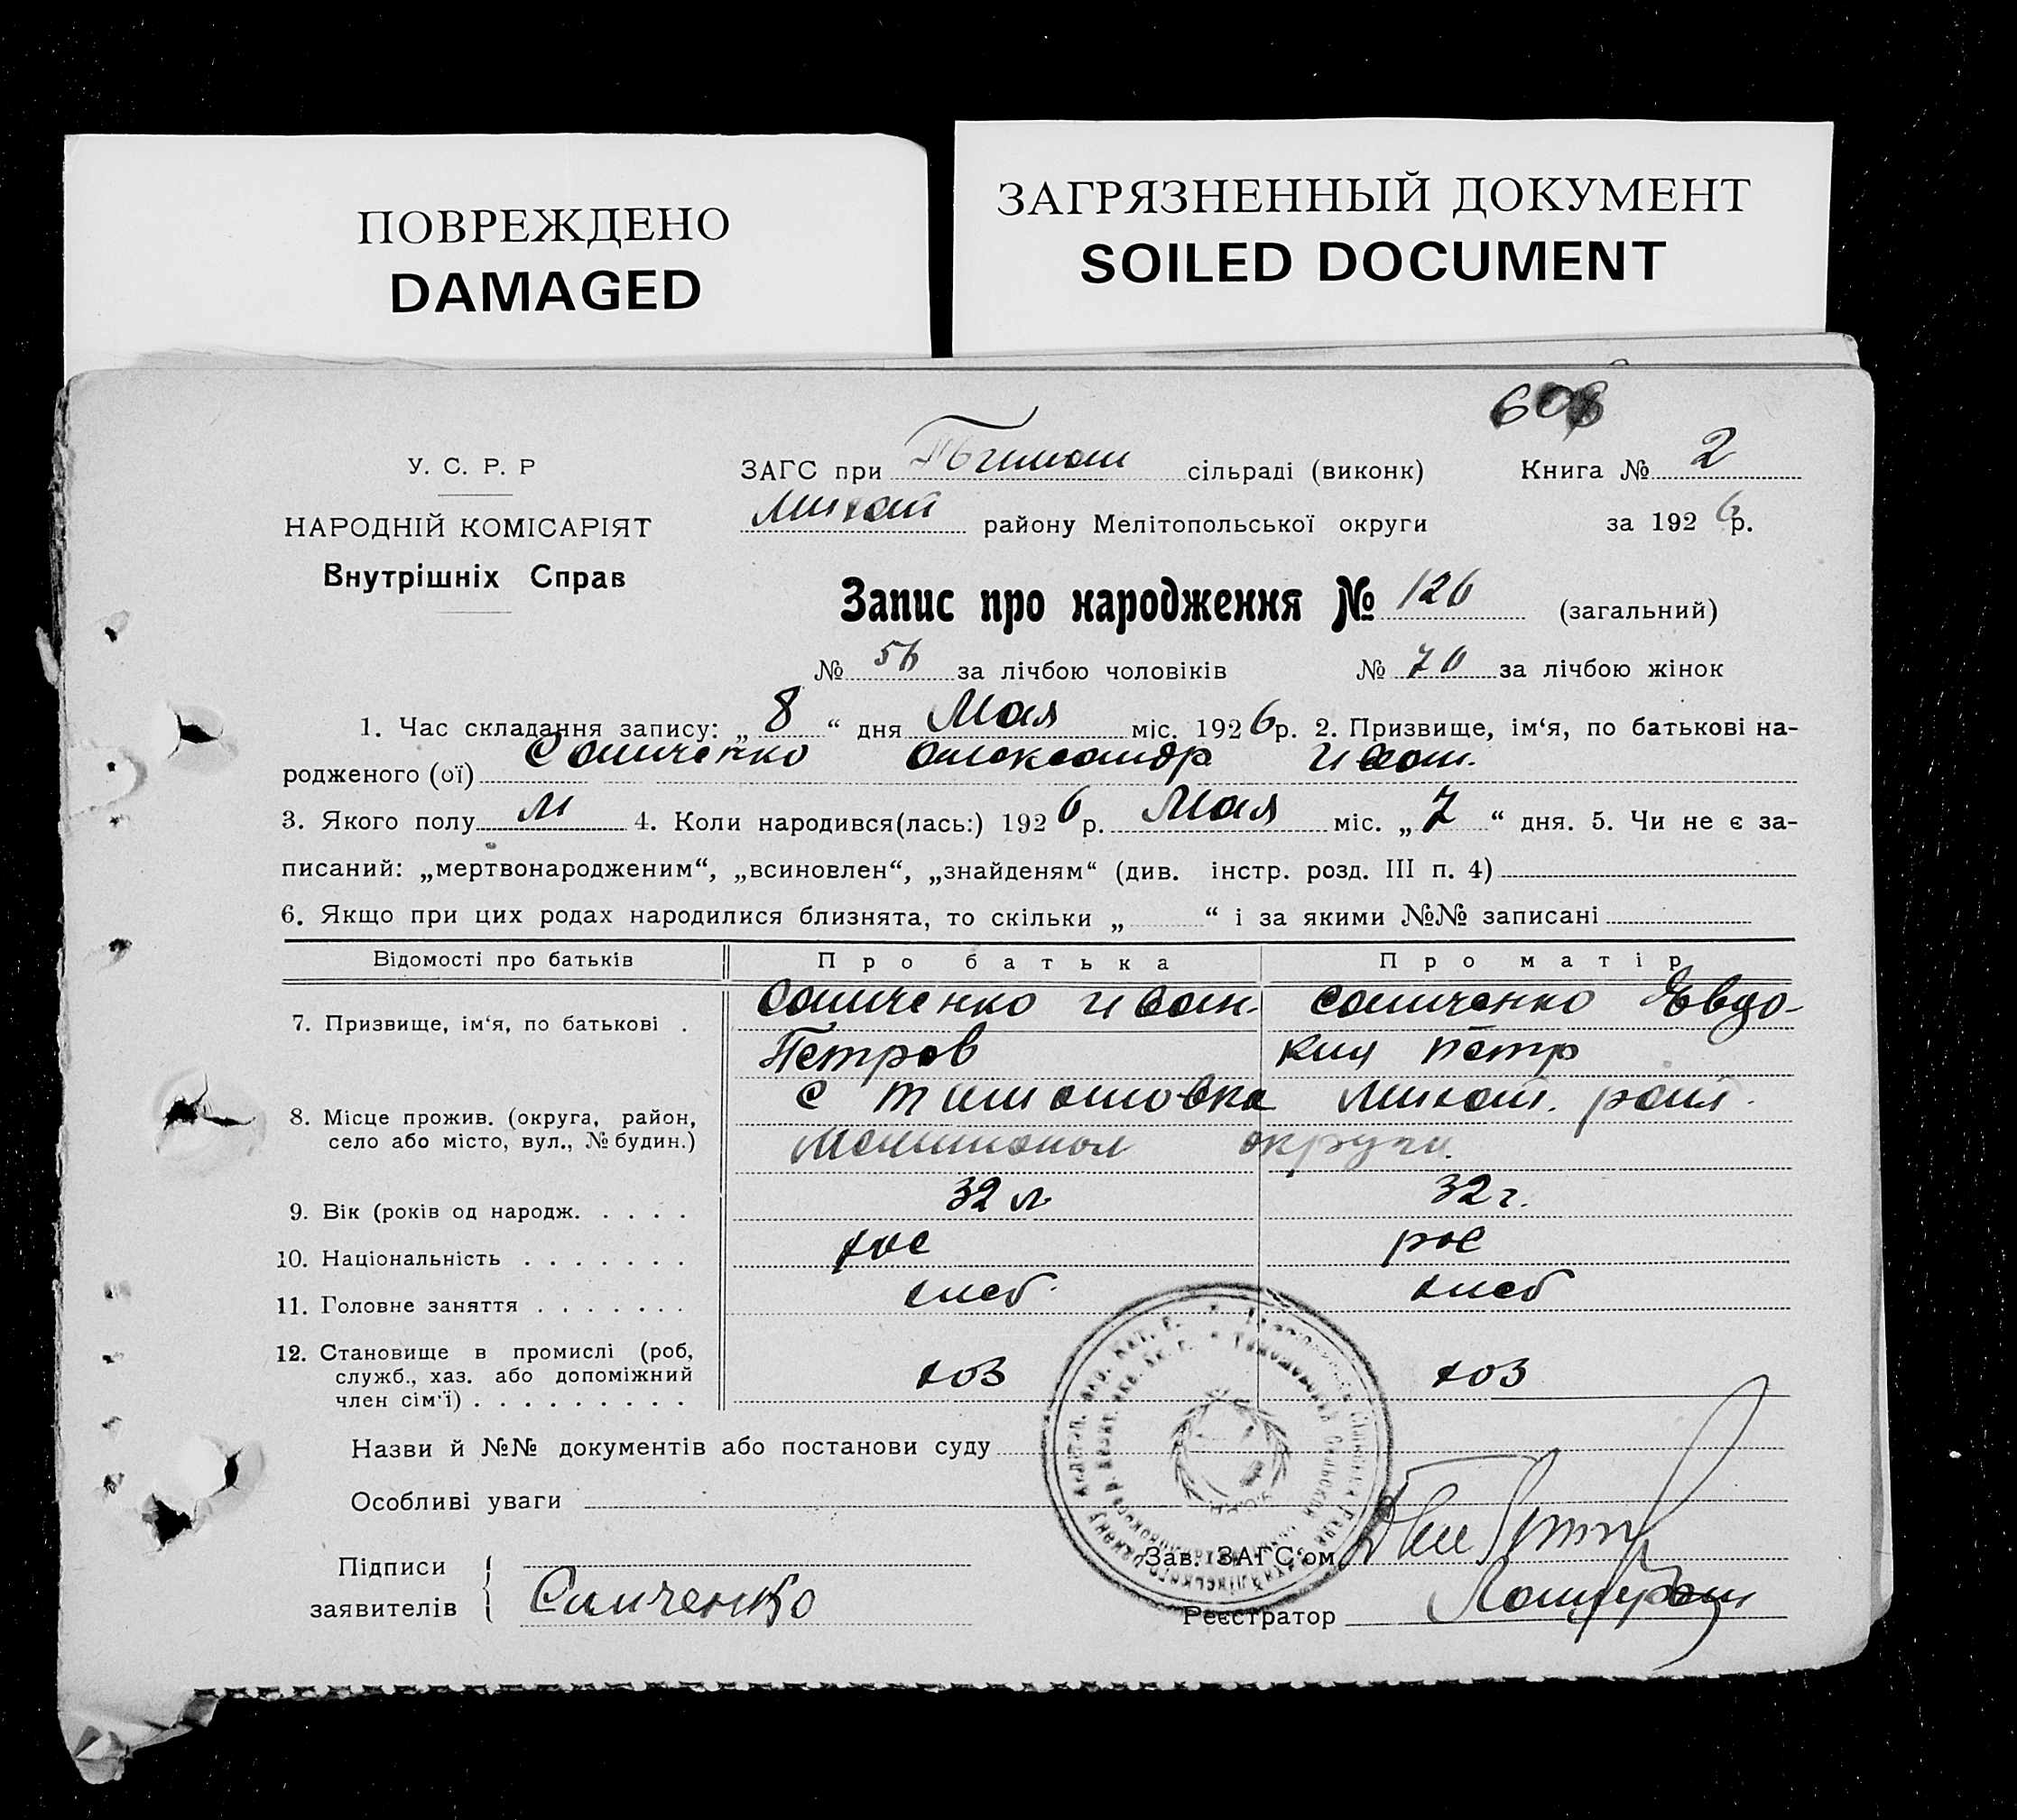 ПОВРЕЖДЕНО
DAMAGED
ЗАГРЯЗНЕННЫЙ ДОКУМЕНТ
SOILED DOCUMENT
У. С. Р. Р
НАРОДНІЙ КОМІСАРІЯТ
Внутрішніх Справ
606
ЗАГС при сільраді (виконк) Книга № 2
Михай району Мелітопольської округи за 1926р.
Запис про народження № 126 (загальний)
№ 56 за лічбою чоловіків № 70 за лічбою жінок
1. Час складання запису: „8“ дня Мая міс. 1926р. 2. Призвище, ім‘я, по батькові на-
родженого (ої) Самченко Александр Иван.
3. Якого полу м 4. Коли народився(лась:) 1926р. Мая міс. „7“ дня. 5. Чи не є за-
писаний: „мертвонародженим“, „всиновлен“, „знайденям“ (див. інстр. розд. III п. 4)
6. Якщо при цих родах народилися близнята, то скільки „ “ і за якими №№ записані
Відомості про батьків Про батька Про матір
7. Призвище, ім‘я, по батькові . Самченко Иван. Самченко Евдо-
Петров кия петр
8. Місце прожив. (округа, район, село або місто, вул., № будин.) с тимошовка Михай. район.
Мелитопол округи.
9. Вік (років од народж. . . . . 32 л 32 г.
10. Національність . . . . . . . рос рос
11. Головне заняття . . . . . . . хлеб. хлеб
12. Становище в промислі (роб,
служб., хаз. або допоміжний
член сім‘ї) . . . . . . . . . хоз хоз
Назви й №№ документів або постанови суду
Особливі уваги
Підписи
заявителів Самченко
Зав. ЗАГС‘ом
Реєстратор